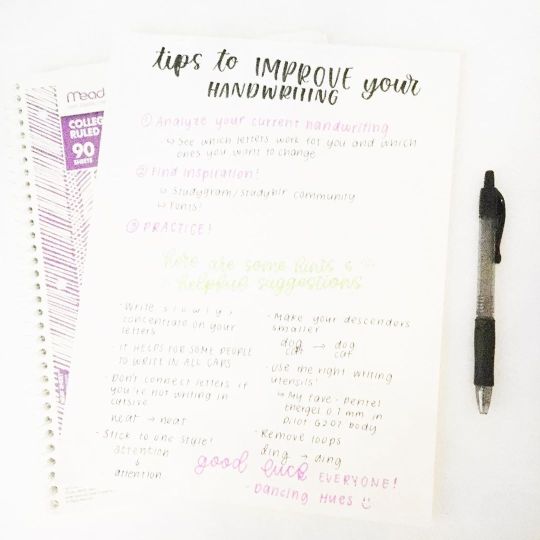 tips to IMPROVE your
HANDWRITING
① Analyze your current handwriting
↳ See which letters work for you and which
ones you want to change
② Find inspiration!
↳ Studygram/Studyblr community
↳ Fonts!
③ PRACTICE!
here are some hints &
helpful suggestions
· Write s l o w l y &
concentrate on your
letters
· IT HELPS FOR SOME PEOPLE
TO WRITE IN ALL CAPS
· Don't connect letters if
you're not writing in
cursive
neat → neat
· Stick to one style!
attention
↓
attention
· Make your descenders
smaller
dog → dog
cat cat
· Use the right writing
utensils
↳ My fave - Pentel
Energel 0.7 mm in
Pilot G207 body
· Remove loops
ding → ding
good luck EVERYONE!
- Dancing Hues
Mead
COLLEG
RULED
90
SHEETS